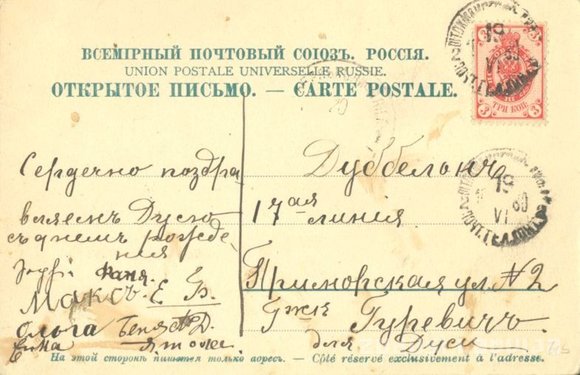 ВСЕМІРНЫЙ ПОЧТОВЫЙ СОЮЗЪ. РОССІЯ.
UNION POSTALE UNIVERSELLE RUSSIE.
ОТКРЫТОЕ ПИСЬМО. — CARTE POSTALE.
3 ТРИ КОП. 3
19
VI
Сердечно поздра
вляемъ Дусю
съ днемъ рожде
ния
Фаня.
Максъ Е. Б.
Ольга Беня Д.
я тоже
Дуббельнъ
17ая линия
Приморская ул. № 2
Гуревичъ
для Дуси
19
VI
На этой сторонѣ пишется только адресъ. — Côté réservé exclusivement à l'adresse.